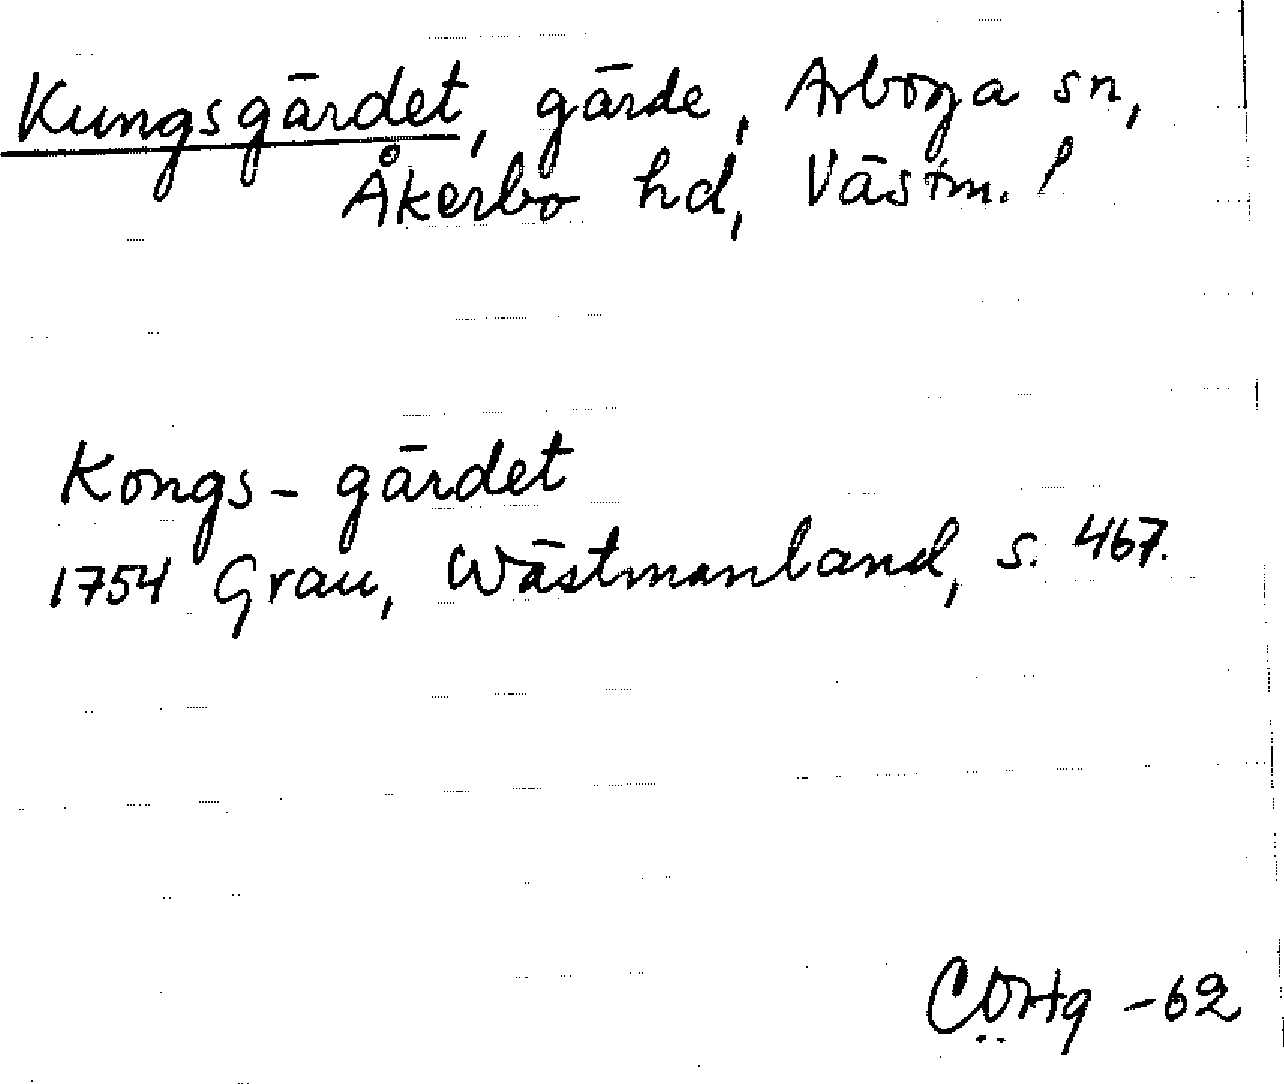 Kungsgärdet, gärde, Arboga sn,
Åkerbo hd, Västm.
Kongs-gärdet
1754 Grau, Wästmanland, s. 467.
-62